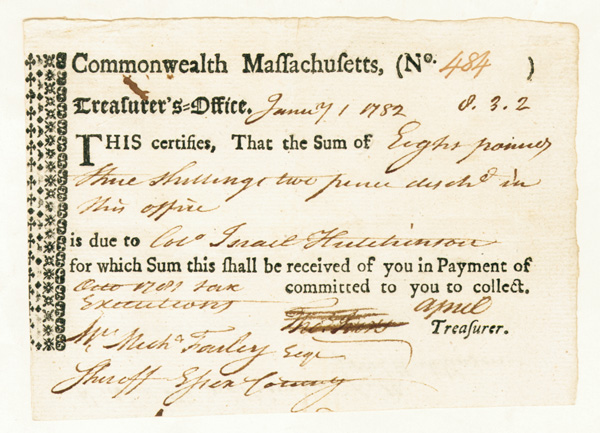 Commonwealth Maſſachuſetts, (Nº. 484 )
Treaſurer's-Office. Janu'y 1 1782 8. 3. 2
THIS certifies, That the Sum of Eight pounds
three shillings two pence disch'd in
this office
is due to Colº Israel Hutchinson
for which Sum this ſhall be received of you in Payment of
Octo 1781 tax committed to you to collect.
Executions April
Treaſurer.
Mr Mich'l Farley Esqr
Sheriff Essex County